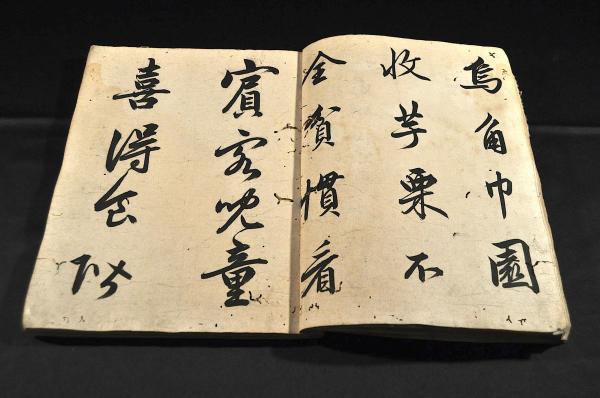 烏角巾園
收芋栗不
全貧慣看
賓客兒童
喜得食階